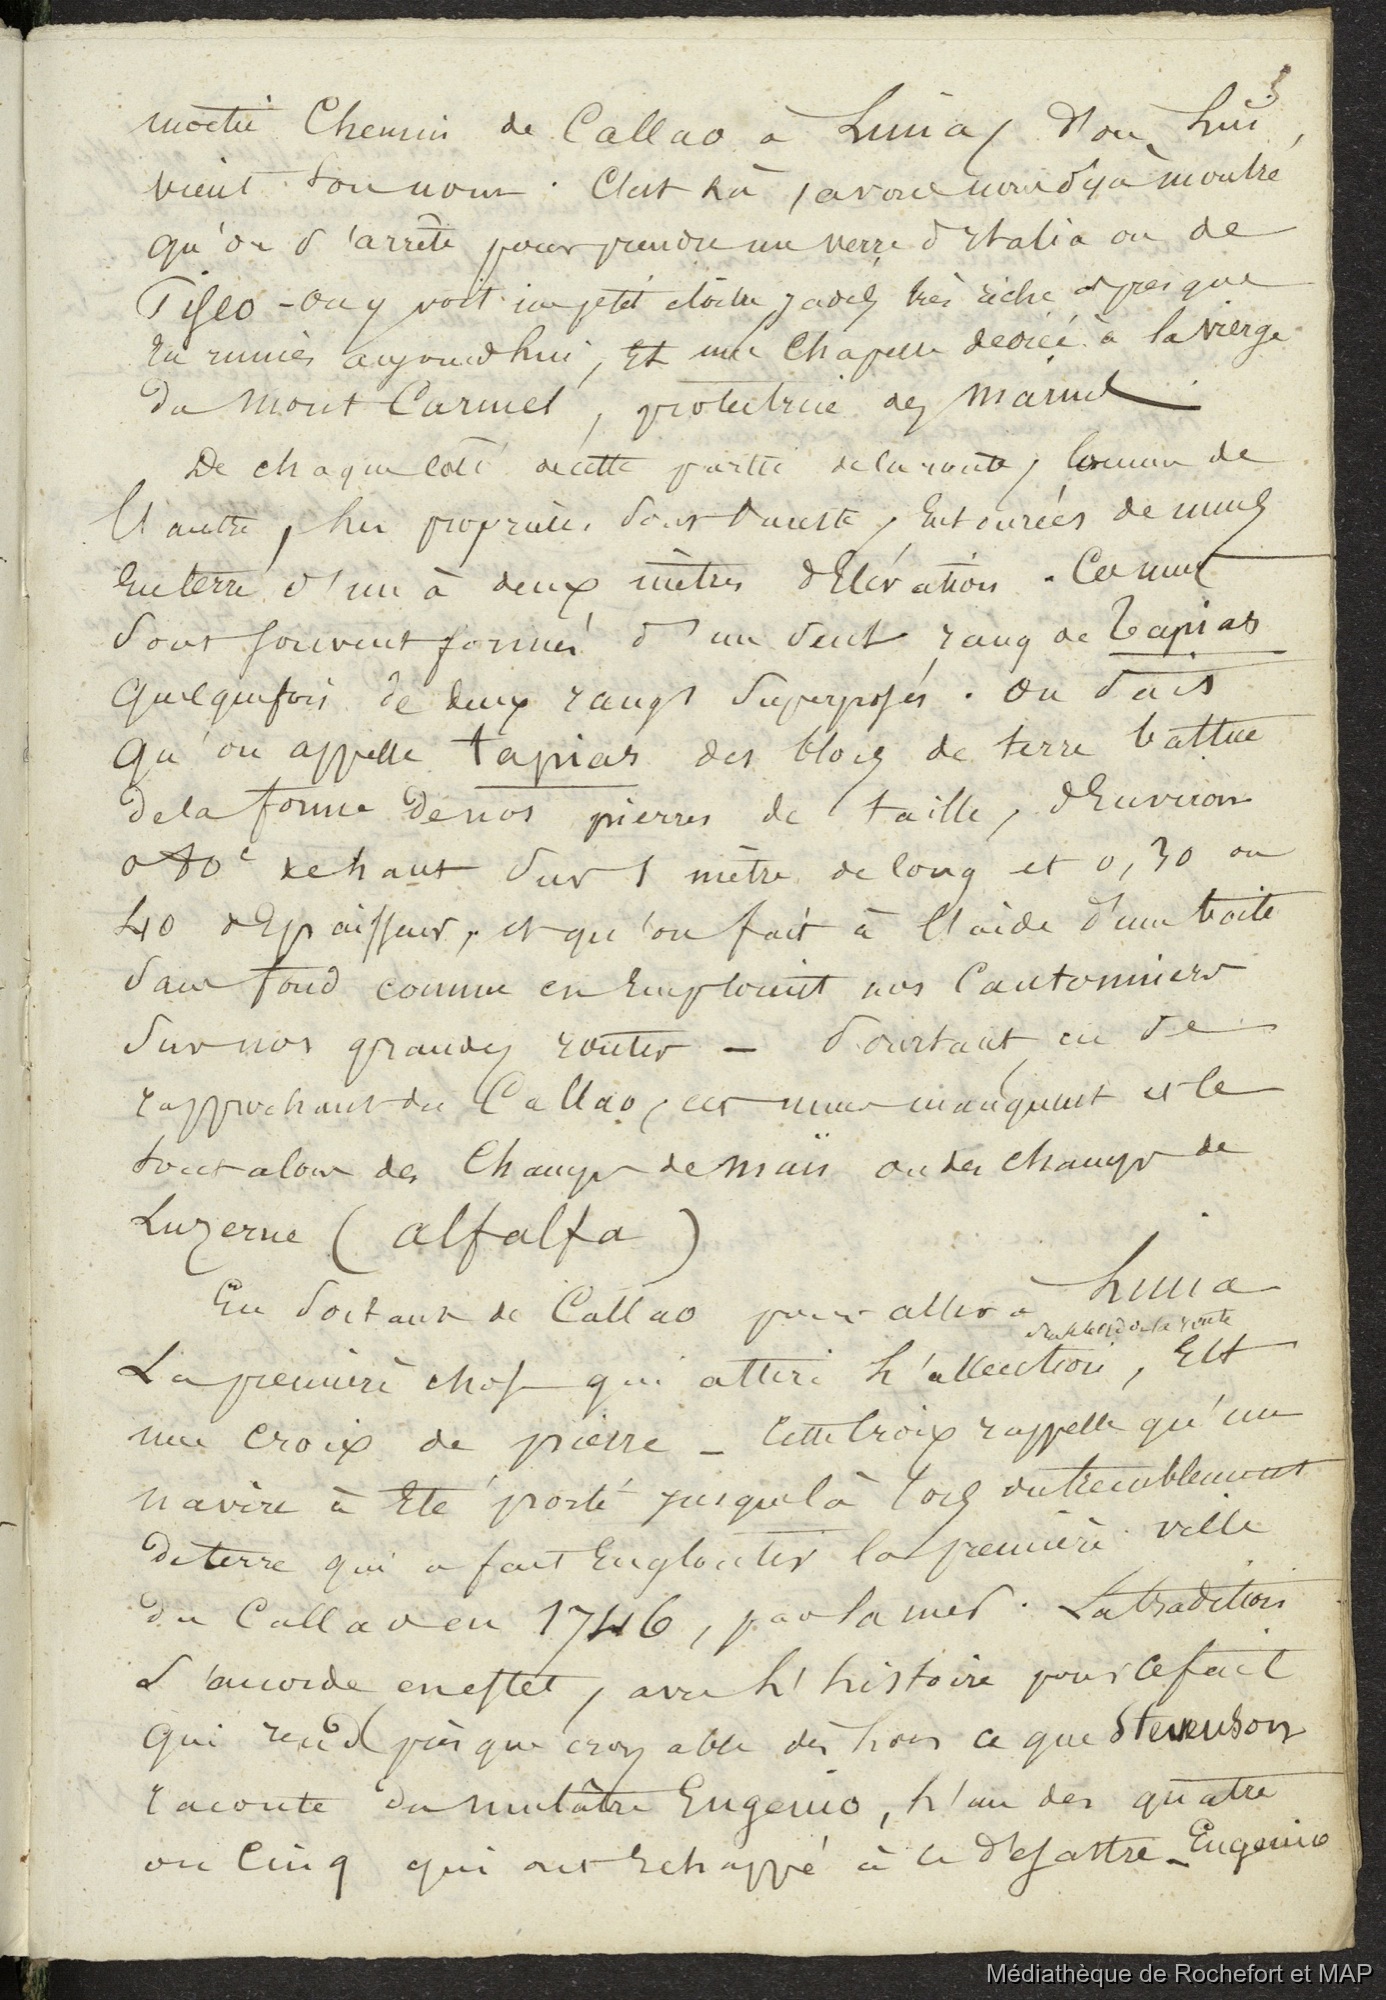 3
moitié Chemin de Callao à Lima, d'où lui
vient son nom. C'est là, avons nous déjà montré
qu'on s'arrête pour prendre un verre d'Italia ou de
Pisco - On y voit un petit cloître jadis très riche et presque
en ruines aujourd'hui, Et une Chapelle dédiée à la vierge
du Mont Carmel, protectrice des Marins
De chaque côté de cette partie de la route, comme de
l'autre, les propriétés sont du reste, Entourées de murs
En terre d'un à deux mètres d'Elévation. Ces murs
sont souvent formés d'un seul rang de Tapias
quelquefois de deux rangs superposés. On sait
qu'on appelle tapias des blocs de terre battue
de la forme de nos pierres de taille, d'Environ
0 80c de haut sur 1 mètre de long et 0,30 ou
40 d'Epaisseur, et qu'on fait à l'aide d'une boite
sans fond comme en Emploient nos Cantonniers
sur nos grandes routes - Pourtant, en se
rapprochant du Callao, ces murs manquent et ce
sont alors des Champs de maïs ou des champs de
Luzerne (alfalfa)
En sortant de Callao pour aller à Lima
sur le bord de la route
La première chose qui attire l'attention, Est
une croix de pierre - Cette Croix rappelle qu'un
navire à Eté porté jusque là lors du tremblement
de terre qui a fait Engloutir la première ville
du Callao en 1746, par la mer. La tradition
s'accorde en effet, avec l'histoire pour ce fait
qui rend presque croyable dès lors ce que Stevenson
raconte du mulâtre Eugenio, l'un des quatre
ou Cinq qui ont Echappé à ce désastre - Eugenio
Médiathèque de Rochefort et MAP